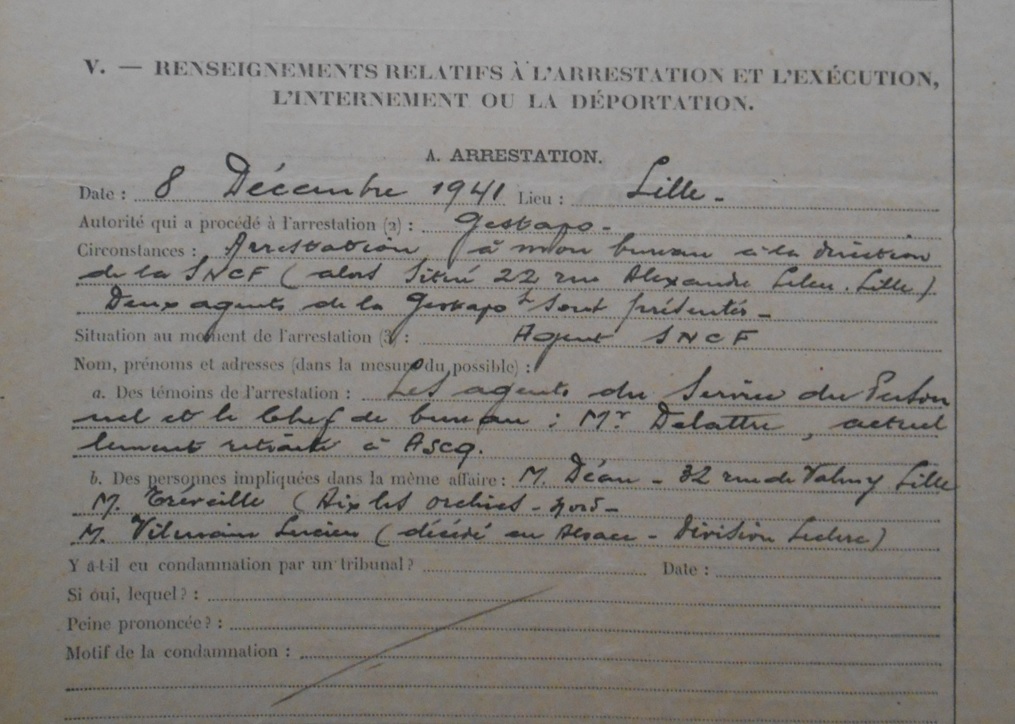 V. — RENSEIGNEMENTS RELATIFS À L'ARRESTATION ET L'EXÉCUTION,
L'INTERNEMENT OU LA DÉPORTATION.
A. ARRESTATION.
Date : 8 Décembre 1941 Lieu : Lille -
Autorité qui a procédé à l'arrestation (2) : Gestapo -
Circonstances : Arrestation à mon bureau à la direction
de la SNCF (alors Situé 22 rue Alexandre Leleu. Lille)
Deux agents de la Gestapo se sont présentés -
Situation au moment de l'arrestation (3) : Agent SNCF
Nom, prénoms et adresses (dans la mesure du possible) :
a. Des témoins de l'arrestation : Les agents du Service du Person
nel et le Chef de bureau : Mr Delattre, actuel
lement retraité à Ascq.
b. Des personnes impliquées dans la même affaire : M. Déan - 32 rue de Valmy Lille
M. (Aix les orchies - Nord -
M. Lucien (décédé en Alsace - Division Leclerc)
Y a-t-il eu condamnation par un tribunal ? Date :
Si oui, lequel ? :
Peine prononcée ? :
Motif de la condamnation :